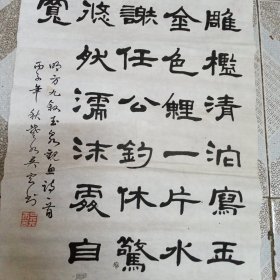 雕檻清泊寫玉
金色鯉一片水
謝任公釣休驚
悠然濡沫處自
寬
明方九敘玉泉觀魚詩一首
丙子年秋